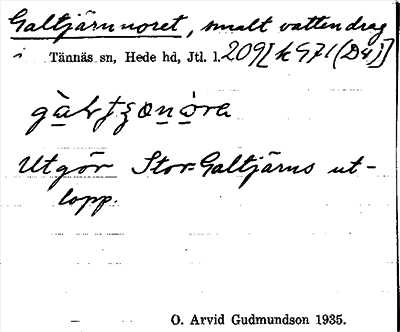 Galtjärnnoret, smalt vattendrag
i Tännäs sn, Hede hd, Jtl. l. 209[k 971(D4)]
Utgör Stor-Galtjärns ut-
lopp.
O. Arvid Gudmundson 1935.